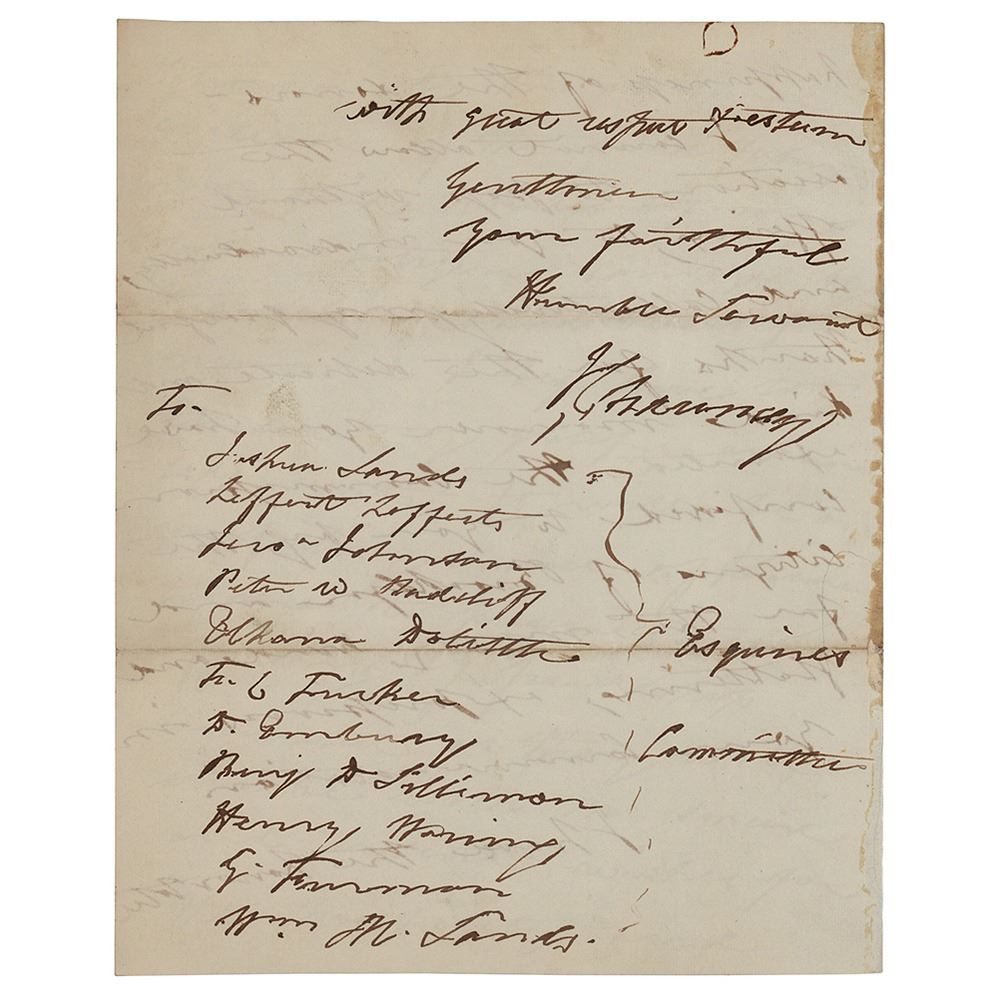 with great respect & esteem
Gentlemen
Your faithful
Humble Servant
I Chauncey
To.
Joshua Sands
Leffert Lefferts
Jere^m Johnson
Peter W Radcliff
Elkana Dolittle
Fr. C Tucker
D. Embury
Benj D Silliman
Henry Waring
G. Furman
Wm M. Sands.
Esquires
Committee